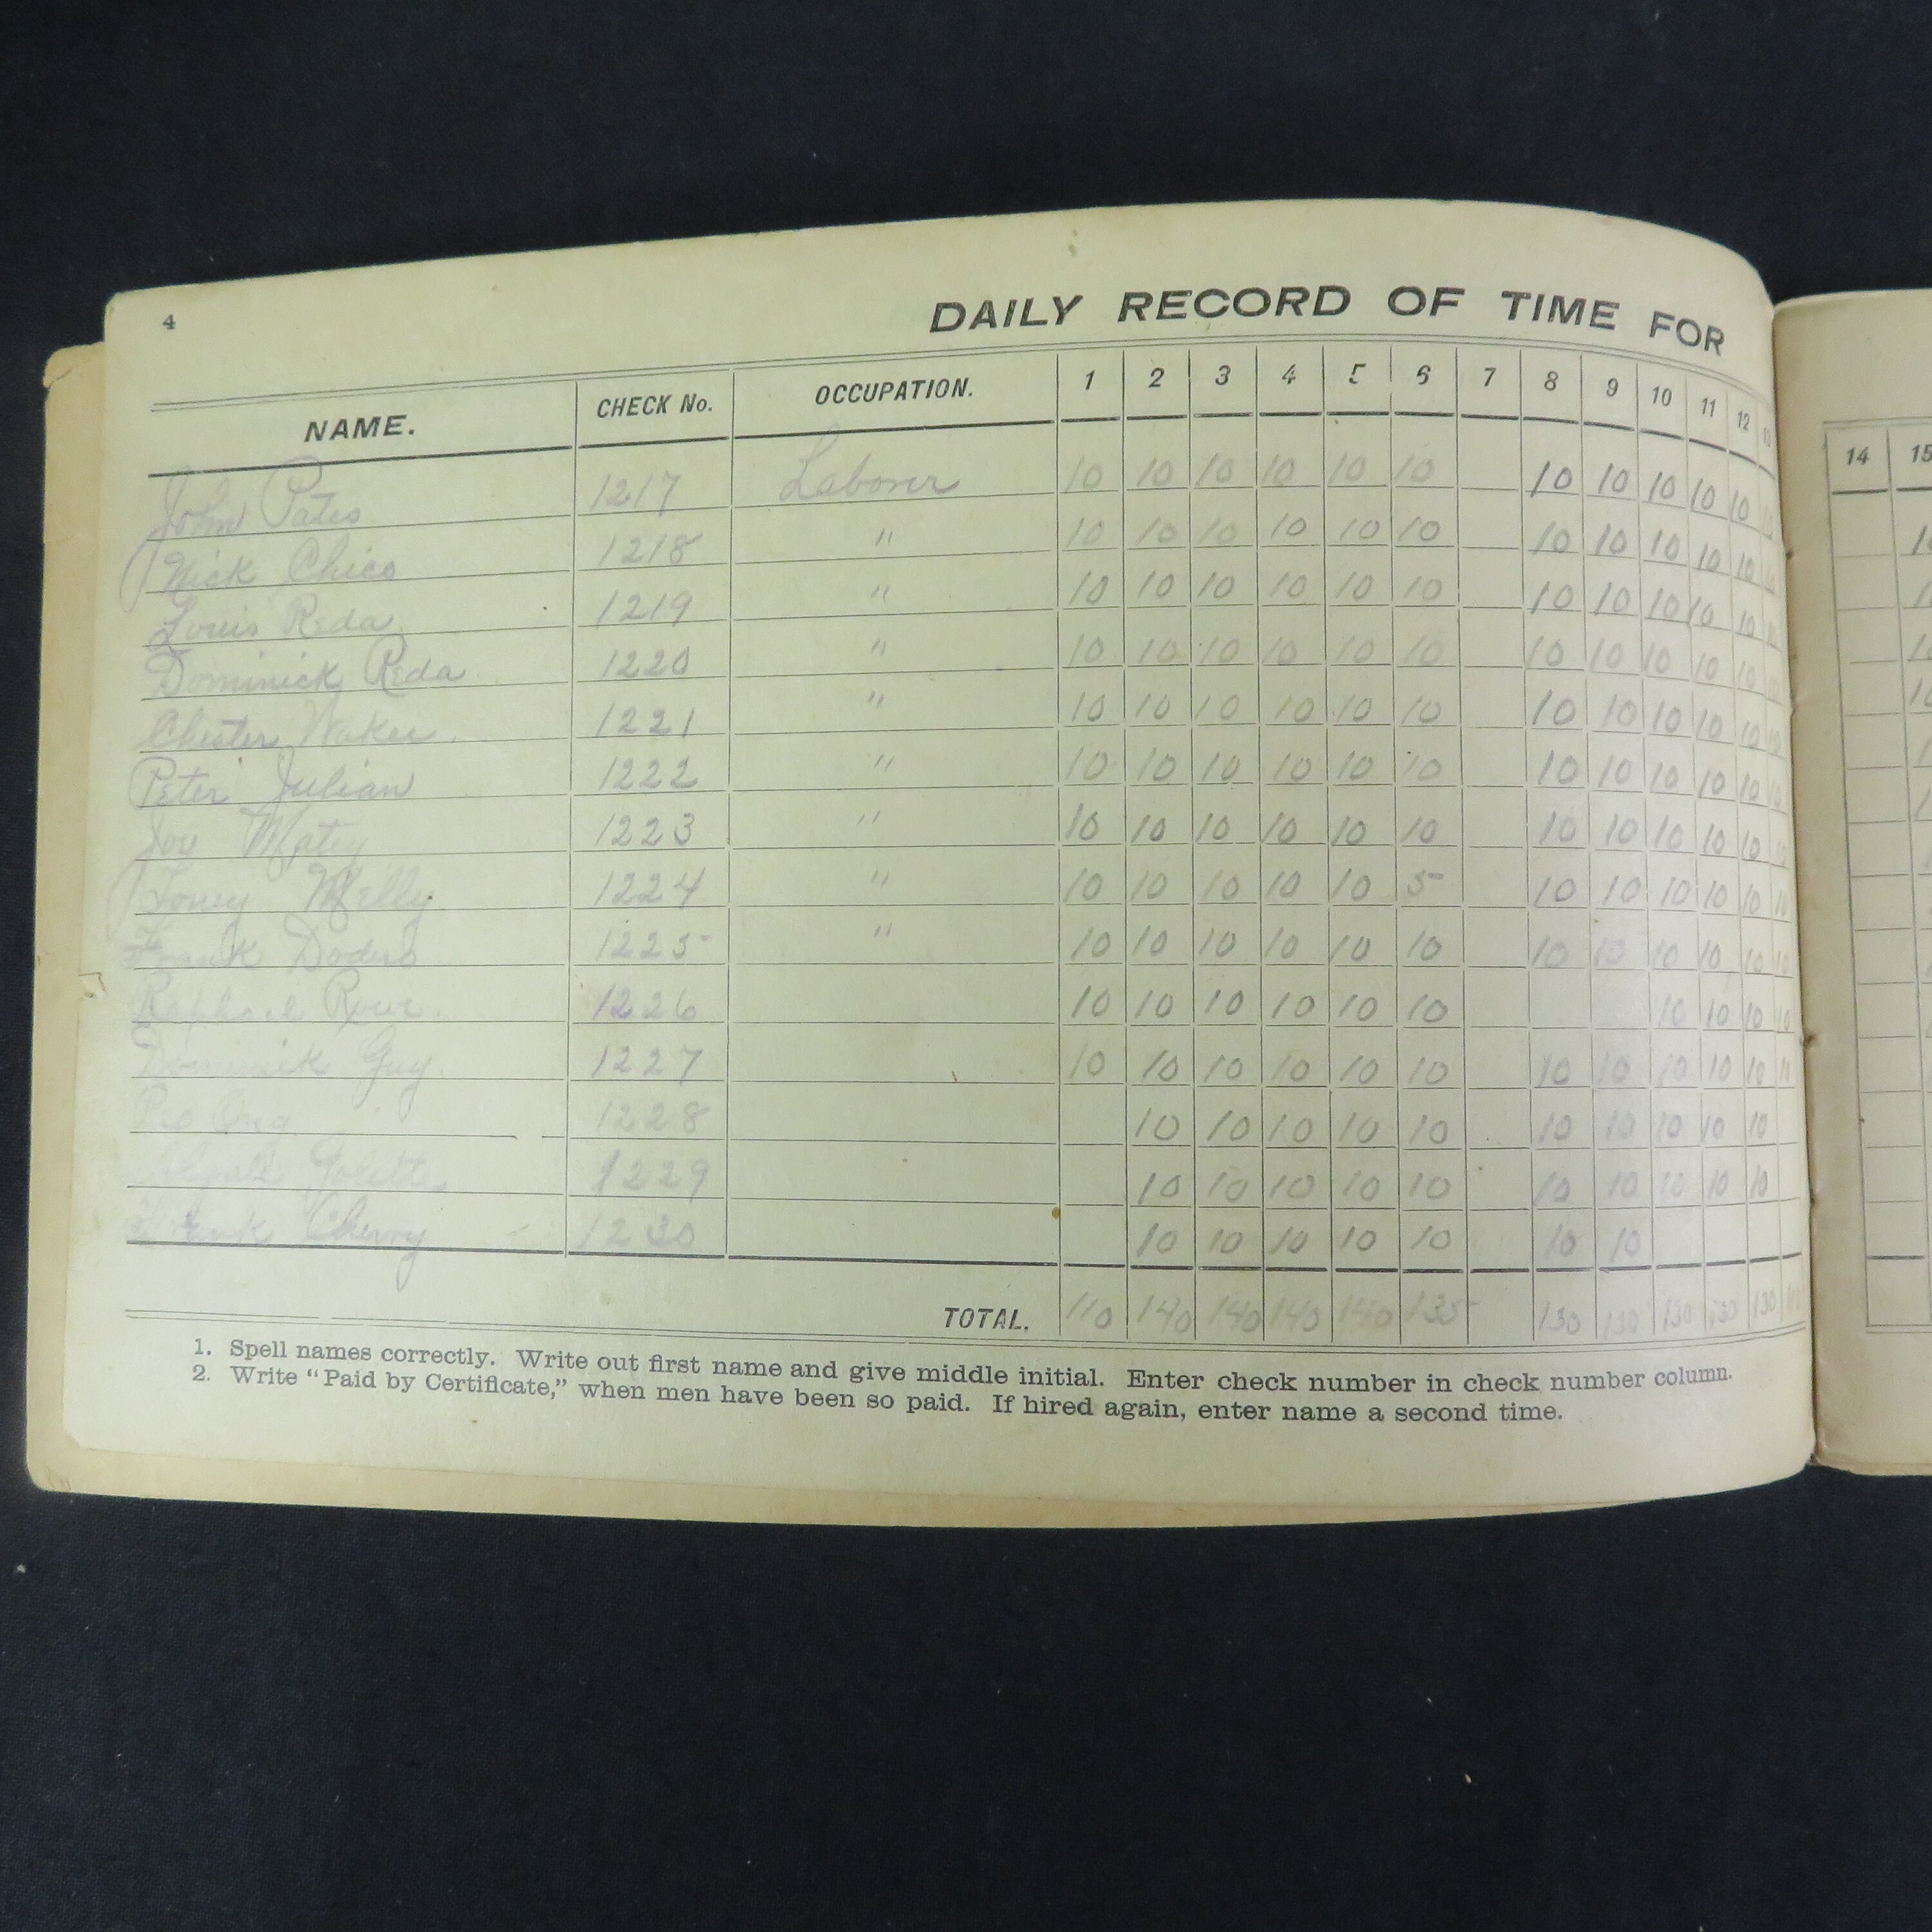 4
DAILY RECORD OF TIME FOR
NAME. CHECK No. OCCUPATION. 1 2 3 4 5 6 7 8 9 10 11 12 13
John Pates 1217 Laborer 10 10 10 10 10 10 10 10 10 10 10 10
Nick Chico 1218 " 10 10 10 10 10 10 10 10 10 10 10 10
Louis Reda 1219 " 10 10 10 10 10 10 10 10 10 10 10 10
Dominick Reda 1220 " 10 10 10 10 10 10 10 10 10 10 10 10
Chester 1221 " 10 10 10 10 10 10 10 10 10 10 10 10
Peter Julian 1222 " 10 10 10 10 10 10 10 10 10 10 10 10
Joe Matey 1223 " 10 10 10 10 10 10 10 10 10 10 10 10
Toney Melly 1224 " 10 10 10 10 10 5 10 10 10 10 10 10
Frank 1225 " 10 10 10 10 10 10 10 10 10 10 10 10
Raphael 1226 10 10 10 10 10 10 10 10 10 10
Dominick Guy 1227 10 10 10 10 10 10 10 10 10 10 10 10
1228 10 10 10 10 10 10 10 10 10 10
1229 10 10 10 10 10 10 10 10 10 10
Frank Chervy 1230 10 10 10 10 10 10 10
TOTAL. 110 140 140 140 140 135 130 130 130 130 130
1. Spell names correctly. Write out first name and give middle initial. Enter check number in check number column.
2. Write "Paid by Certificate," when men have been so paid. If hired again, enter name a second time.
14 15